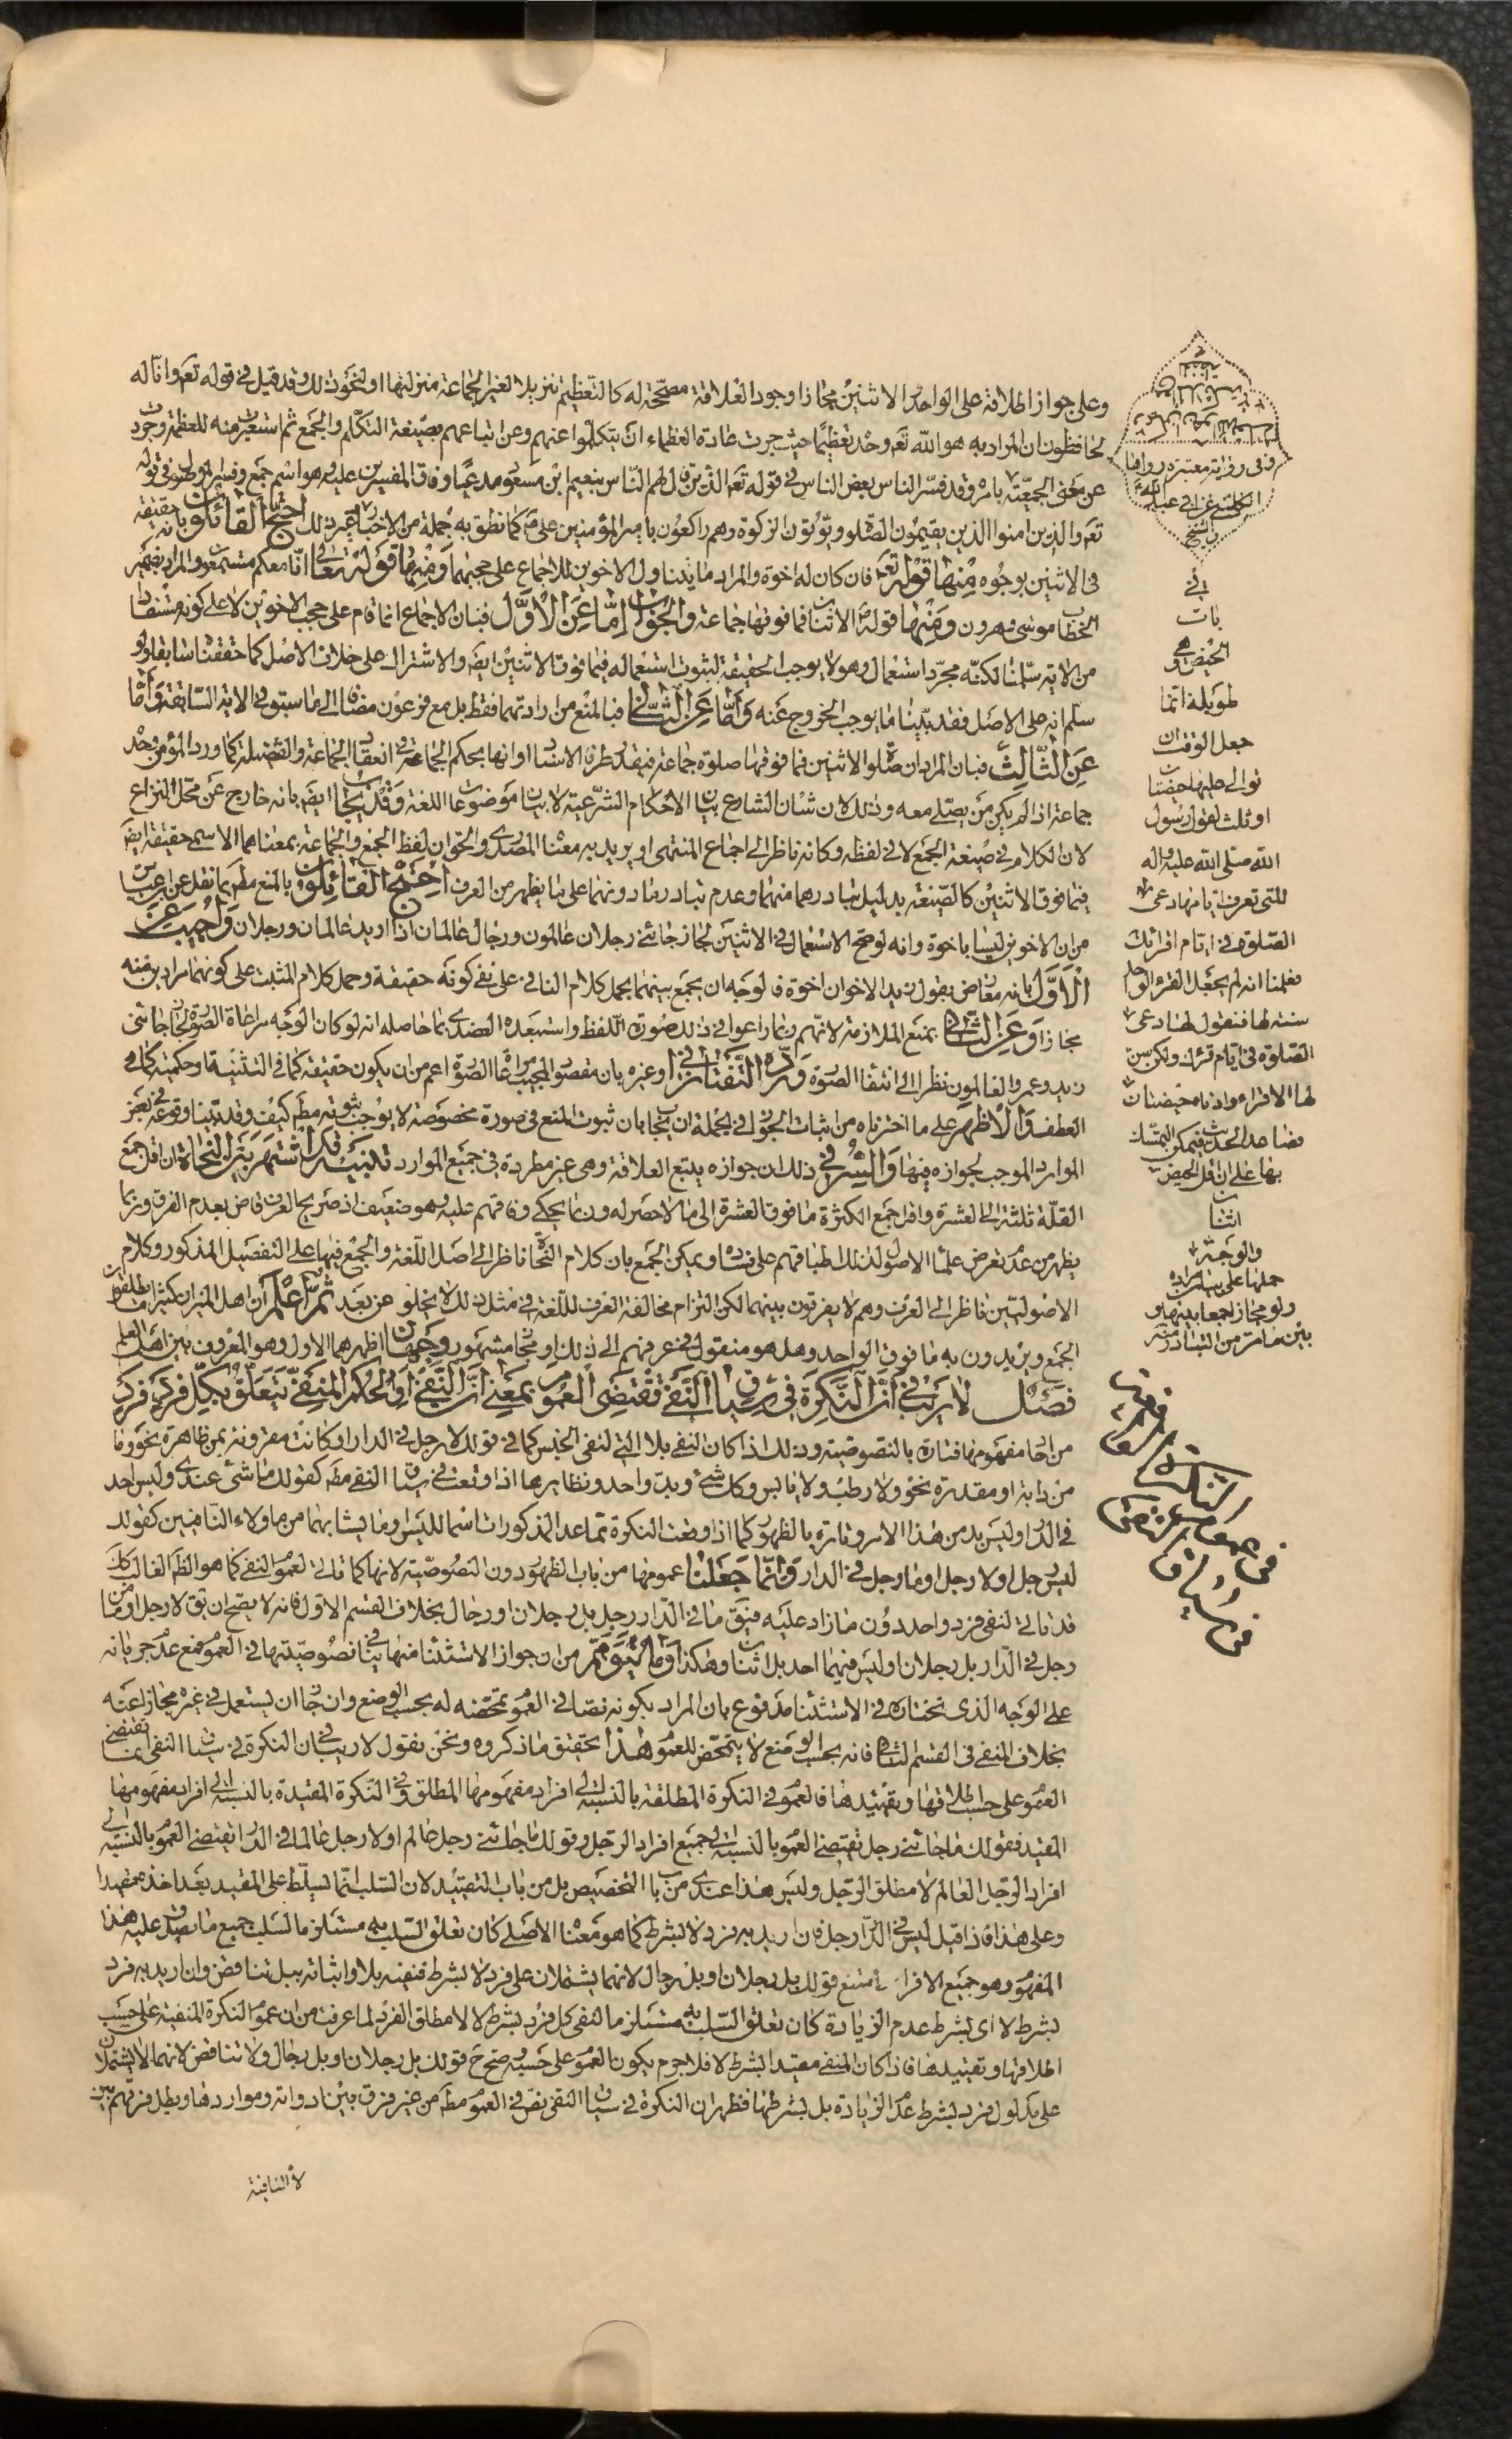 وعلى جواز اطلاقه على الواحد والاثنين مجازا وجود العلاقة مصححة له كالتعظيم تنزيلا لغير الجماعة منزلتها او لنحو ذلك وقد قيل في قوله تعم وانا له
لحافظون ان المراد به هو الله تعم وحده تعظيما حيث جرت عادة العظماء ان يتكلموا عنهم وعن اتباعهم بصيغة التكلم والجمع ثم استعيرت منه للعظمة وجود
عن معنى الجمعية بامره وقد فسر الناس ببعض الناس في قوله تعم الذين قال لهم الناس بنعيم بن مسعود مدعيا وفاق المفسرين عليه وهو اسم جمع وفسر الموصول في قوله
تعم والذين امنوا الذين يقيمون الصلوة ويؤتون الزكوة وهم راكعون بامير المؤمنين على كما نطق به جملة من الاخبار الى غير ذلك احتج القائلون بانه حقيقة
في الاثنين بوجوه منها قوله تعم فان كان له اخوة والمراد ما يتناول الاخوين للاجماع على حجبهما ومنها قوله تعالى انا معكم مستمعون والمراد بضمير
الخطاب موسى وهرون ومنها قوله الاثنان فما فوقها جماعة والجواب اما عن الاول فبان الاجماع انما قام على حجب الاخوين لا على كونه مستفادا
من الاية سلمنا لكنه مجرد استعمال وهو لا يوجب الحقيقة لثبوت استعماله فيما فوق الاثنين ايضا والاشتراك على خلاف الاصل كما حققنا سابقا ولو
سلم انه على الاصل فقد بينا ما يوجب الخروج عنه واما عن الثاني فبالمنع من ارادتهما فقط بل مع فرعون مضافا الى ما سبق في الاية السابقة واما
عن الثالث فبان المراد ان صلوة الاثنين فما فوقها صلوة جماعة فيقدر طرفا الاسناد او انها بحكم الجماعة في انعقاد الجماعة والفضيلة كما ورد المؤمن وحده
جماعة اذا لم يكن من يصلى معه وذلك لان شان الشارع بيان الاحكام الشرعية لا بيان موضوعات اللغة وقد يجاب ايضا بانه خارج عن محل النزاع
لان الكلام في صيغة الجمع لا في لفظه وكانه ناظر الى اجماع المنتهى او يريد به معناه المصدرى والحق ان لفظ الجمع والجماعة بمعناهما الاسمى حقيقة ايضا
فيما فوق الاثنين كالصيغة بدليل تبادرهما منهما وعدم تبادر ما دونهما على ما يظهر من العرف احتج القائلون بالمنع مطم بما نقل عن ابن عباس
من ان الاخوين ليسا باخوة وانه لو صح الاستعمال في الاثنين لجاز جائني رجلان عالمون ورجال عالمان اذا اريد عالمان ورجلان واجيب عن
الاول بانه معارض بقول زيد الاخوان اخوة فالوجه ان يجمع بينهما بحمل كلام النافي على نفى كونه حقيقة وحمل كلام المثبت على كونهما مرادين منه
مجازا وعن الثاني بمنع الملازمة لانهم ربما راعوا في ذلك صورة اللفظ واستبعده العضدى بما حاصله انه لو كان الوجه مراعاة الصورة لجاز جائنى
زيد وعمرو العالمون نظرا الى انتفاء الصورة ورده التفتازانى وغيره بان مقصود المجيب مراعاة الصورة اعم من ان يكون حقيقة كما في التثنية او حكمية كما في
العطف والاظهر على ما اخترناه من اثبات الجواز في الجملة ان يجاب بان ثبوت المنع في صورة مخصوصة لا يوجب ثبوته مطم كيف وقد بينا وقوعه في بعض
الموارد الموجب لجوازه فيها والسر في ذلك ان جوازه يتبع العلاقة وهى غير مطردة في جميع الموارد تذنيب قد اشتهر بين النحاة ان اقل جمع
القلة ثلثة الى العشرة واقل جمع الكثرة ما فوق العشرة الى ما لا حصر له وربما يحكى وفاقهم عليه وهو ضعيف اذ صريح العرف قاض بعدم الفرق وربما
يظهر من عدم تعرض علماء الاصول لذلك اطباقهم على فساده ويمكن الجمع بان كلام النحاة ناظر الى اصل اللغة والجمع فيها على التفصيل المذكور وكلام
الاصوليين ناظر الى العرف وهم لا يفرقون بينهما لكن التزام مخالفة العرف للغة في مثل ذلك لا يخلو عن بعد ثم اعلم ان اهل الميزان كثيرا ما يطلقون
الجمع ويريدون به ما فوق الواحد وهل هو منقول في عرفهم الى ذلك او مجاز مشهور وجهان اظهرهما الاول وهو المعروف بين اهل العلم
فصل لا ريب في ان النكرة في سياق النفى تقتضى العموم بمعنى ان النفى او الحكم المنفى يتعلق بكل فرد فرد
من احاد مفهومها فتارة بالنصوصية وذلك اذا كان النفى بلا التى لنفى الجنس كما في قولك لا رجل في الدار او كانت مقرونة بمن ظاهرة نحو وما
من دابة او مقدرة نحو ولا رطب ولا يابس وكل شيء وبد واحد ونظايرها اذا وقعت في سياق النفى مطم كقولك ما شيء عندى وليس احد
في الدار وليس بد من هذا الامر وتارة بالظهور كما اذا وقعت النكرة مما عدا المذكورات اسما لليس وما يشابهها من ما ولاء النافيتين كقولك
ليس رجل او لا رجل او ما رجل في الدار وانما جعلنا عمومها من باب الظهور دون النصوصية لانها كما تاتى لعموم النفى كما هو الظاهر الغالب كك
قد تاتى لنفى فرد واحد دون ما زاد عليه فيق ما في الدار رجل بل رجلان او رجال بخلاف القسم الاول فانه لا يصح ان يق لا رجل او ما من
رجل في الدار بل رجلان او ليس فيهما احد بل اثنان وهكذا وما يتوهم من ان جواز الاستثناء منها ينافي نصوصيتها في العموم فمع عدم جريانه
على الوجه الذى نختاره في الاستثناء مدفوع بان المراد بكونه نصا في العموم تمحضه له بحسب الوضع وان جاز ان يستعمل في غيره مجازا عنه
بخلاف المنفى في القسم الثاني فانه بحسب الوضع لا يتمحض للعموم هذا تحقيق ما ذكروه ونحن نقول لا ريب في ان النكرة في سياق النفى انما تقتضى
العموم على حسب اطلاقها وتقييدها فالعموم في النكرة المطلقة بالنسبة الى افراد مفهومها المطلق وفي النكرة المقيدة بالنسبة الى افراد مفهومها
المقيد فقولك ما جائنى رجل يقتضى العموم بالنسبة الى جميع افراد الرجل وقولك ما جائنى رجل عالم او لا رجل عالما في الدار يقتضى العموم بالنسبة الى
افراد الرجل العالم لا مطلق الرجل وليس هذا عندى من باب التخصيص بل من باب التقييد لان السلب انما تسلط على المقيد بعد اخذه مقيدا
وعلى هذا فاذا قيل ليس في الدار رجل فان اريد به فرد لا بشرط كما هو معناه الاصلى كان تعلق السلب به مستلزما لسلب جميع ما يصدق عليه هذا
المفهوم وهو جميع الافراد فيمتنع قولك بل رجلان او بل رجال لانهما يشتملان على فرد لا بشرط فنفيه بلا واثباته ببل تناقض وان اريد به فرد
بشرط لا اى بشرط عدم الزيادة كان تعلق السلب به مستلزما لنفى كل فرد بشرط لا لا مطلق الفرد لما عرفت من ان عموم النكرة المنفية على حسب
اطلاقها وتقييدها فاذا كان المنفى مقيدا بشرط لا فلا جرم يكون العموم على حسبه وصح ح قولك بل رجلان او بل رجال ولا تناقض لانهما لا يشتملان
على مدلول فرد بشرط عدم الزيادة بل بشرطها فظهر ان النكرة في سياق النفى نص في العموم مطم من غير فرق بين ادواته ومواردها وبطل فرقهم بين
لاء النافية
وفى رواية معتبرة رواها
الكلينى عن ابى عبد الله
في
باب
الحيض وهى
طويلة انما
جعل الوقت ان
توالى عليها حيضتان
او ثلث لقول رسول
الله صلى الله عليه واله
للتى تعرف ايامها دعى
الصلوة في ايام اقرائك
فعلمنا انه لم يجعل القرء الواحد
سنة لها فنقول لها دعى
الصلوة في ايام قرئك ولكن سن
لها الاقراء وادناه حيضتان
فصاعدا الحديث فيمكن التمسك
بها على ان اقل الجمع
اثنان
والوجه
حملها على بيان المراد
ولو مجازا جمعا بينها و
بين ما مر من التبادر منه
في وقوع النكرة
في سياق